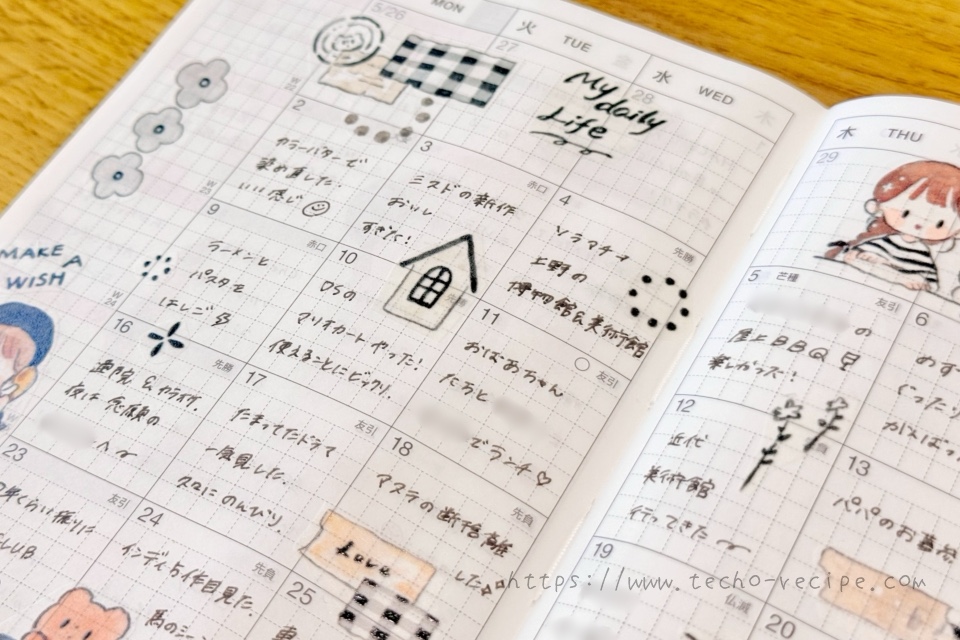 MON
火 TUE
水 WED
木 THU
5/26
27
28
29
My
daily
Life
2
カラーバターで
染め直した.
いい感じ
3
赤口
ミスドの新作
おいし
すぎた!
4
先勝
上野の
博物館&美術館
5 芒種
友引
の
屋上BBQ
楽しかった!
6
MAKE A
WISH
9
赤口
ラーメンと
パスタを
はしご
10
先勝
DSの
マリオカートやった!
使えることにビックリ.
11
友引
おばあちゃん
たちと
でランチ♡
12
近代
美術館
行ってきた
13
パパのお墓参
16
先勝
夜は念願の
へ
17
友引
たまってたドラマ
一気見した.
久々にのんびり.
18
先負
マステの断捨離
した
19
仏滅
20
23
友引
CLUB
24
先負
インディ5作目見た.
馬のシーン
25
Love
https://www.techo-recipe.com